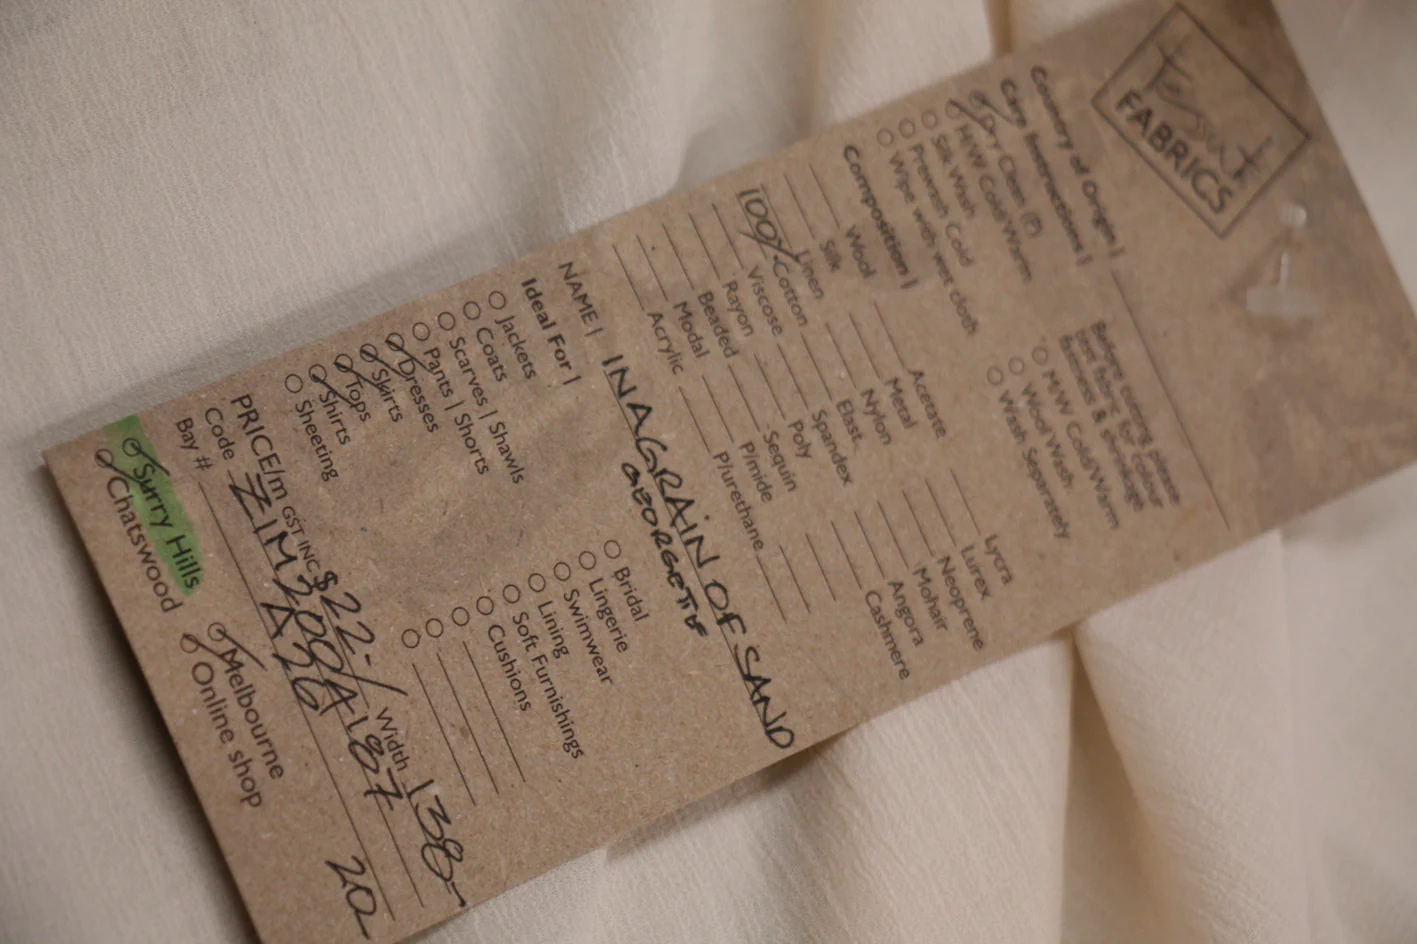 Tessuti
FABRICS
Country of Origin |
Care Instructions |
Dry Clean (P)
H/W Cold/Warm
Silk Wash
Prewash Cold
Wipe with wet cloth
Before cutting please
test fabric for colour
fastness & shrinkage
M/W Cold/Warm
Wool Wash
Wash Separately
Composition |
Wool
Silk
Linen
100% Cotton
Viscose
Rayon
Beaded
Modal
Acrylic
Acetate
Metal
Nylon
Elast.
Spandex
Poly
Sequin
P/mide
P/urethane
Lycra
Lurex
Neoprene
Mohair
Angora
Cashmere
NAME | IN A GRAIN OF SAND
GEORGETTE
Ideal For |
Jackets
Coats
Scarves | Shawls
Pants | Shorts
Dresses
Skirts
Tops
Shirts
Sheeting
Bridal
Lingerie
Swimwear
Lining
Soft Furnishings
Cushions
PRICE/m GST INC $22-/ Width 138-
Code ZIM2009A187
Bay # A26 20
Surry Hills
Chatswood
Melbourne
Online shop